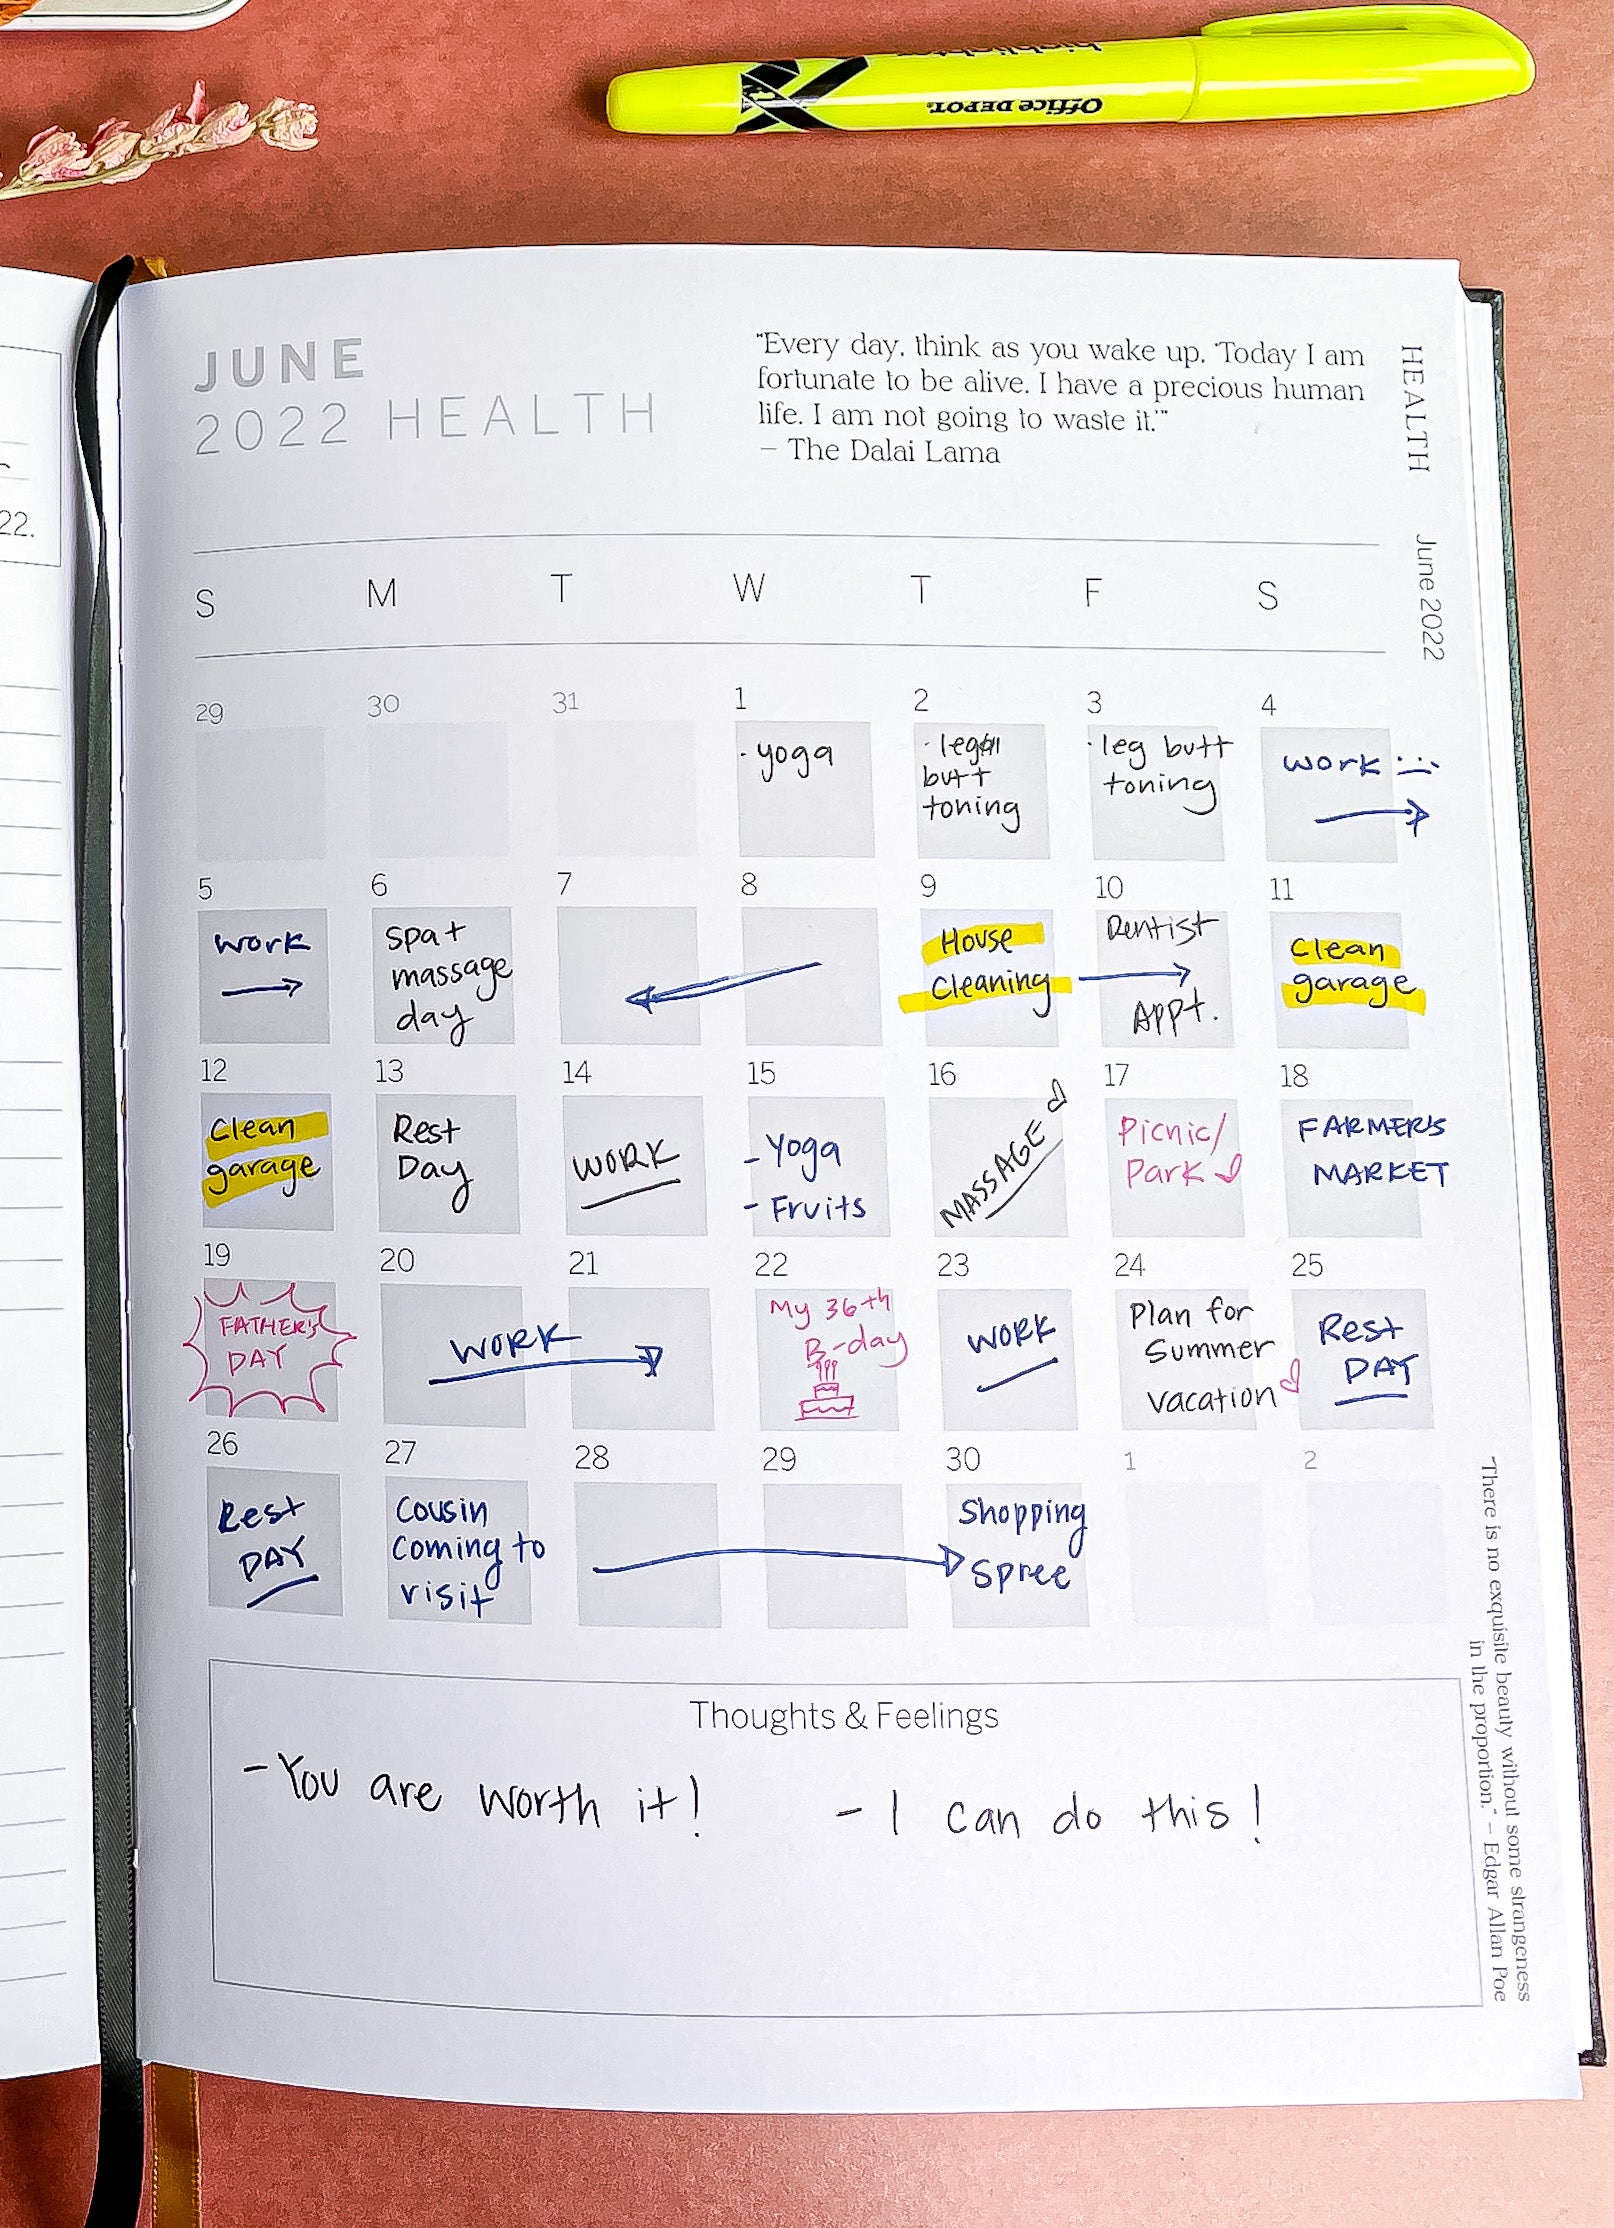 highlighter
Office DEPOT.
22.
JUNE
2022 HEALTH
"Every day, think as you wake up, 'Today I am
fortunate to be alive. I have a precious human
life. I am not going to waste it.'"
– The Dalai Lama
HEALTH
June 2022
S M T W T F S
29 30 31 1 2 3 4
· yoga
· leg
butt
toning
· leg butt
toning
work
5 6 7 8 9 10 11
work
Spa +
massage
day
House
Cleaning
Dentist
Appt.
Clean
garage
12 13 14 15 16 17 18
Clean
garage
Rest
Day
WORK
- Yoga
- Fruits
MASSAGE
Picnic/
Park
FARMER'S
MARKET
19 20 21 22 23 24 25
FATHER'S
DAY
WORK
My 36th
B-day
WORK
Plan for
Summer
vacation
Rest
DAY
26 27 28 29 30 1 2
Rest
DAY
Cousin
Coming to
visit
Shopping
Spree
Thoughts & Feelings
- You are worth it!
- I can do this!
"There is no exquisite beauty without some strangeness
in the proportion." – Edgar Allan Poe